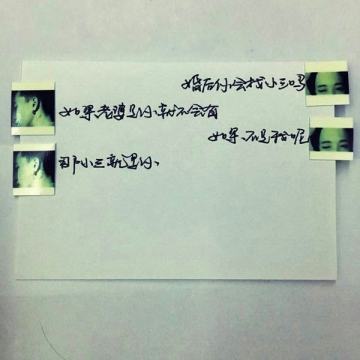 婚后你会找小三吗
如果老婆是你就不会有
如果不是我呢
那小三就是你、